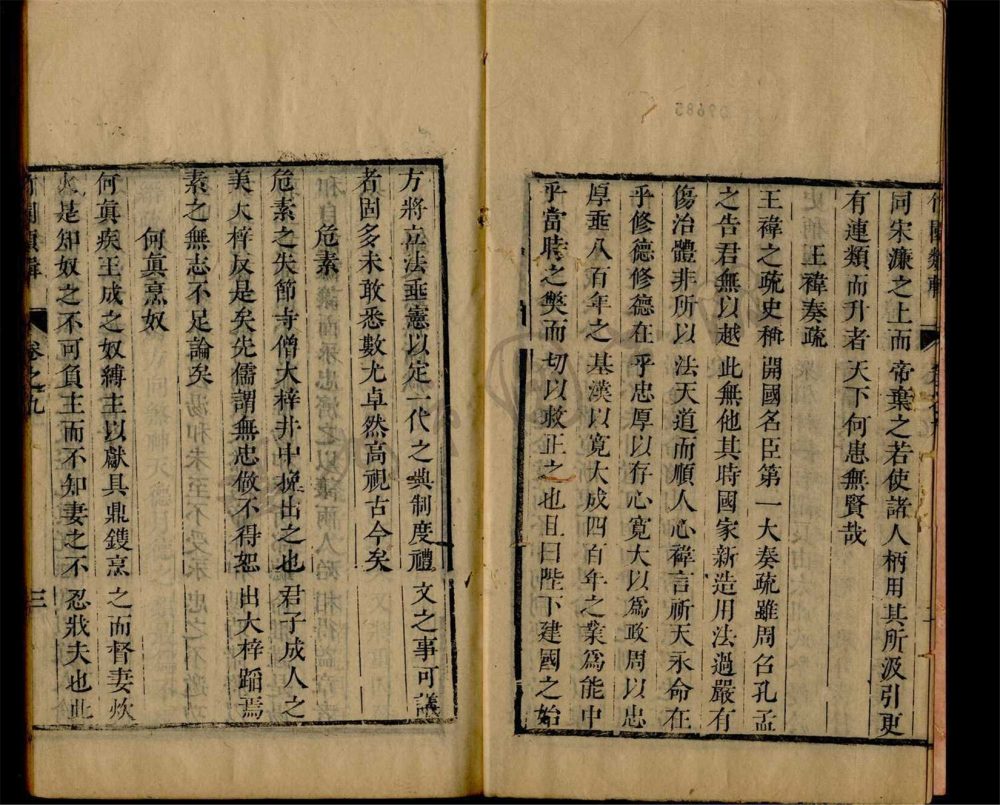 同宋濂之上而帝棄之若使諸人柄用其所汲引更
有連類而升者天下何患無賢哉
王褘奏疏
王褘之疏史稱開國名臣第一大奏疏雖周召孔孟
之告君無以越此無他其時國家新造用法過嚴有
傷治體非所以法天道而順人心褘言祈天永命在
乎修德修德在乎忠厚以存心寬大以爲政周以忠
厚垂八百年之基漢以寬大成四百年之業爲能中
乎當時之獘而切以救正之也且曰陛下建國之始
方將立法垂憲以定一代之典制度禮文之事可議
者固多未敢悉數尤卓然高視古今矣
危素
危素之失節寺僧大梓井中挽出之也君子成人之
美大梓反是矣先儒謂無忠做不得恕出大梓蹈焉
素之無志不足論矣
何眞烹奴
何眞疾王成之奴縛主以獻具鼎鑊烹之而督妻炊
火是知奴之不可負主而不知妻之不忍戕夫也此
卷之九
三
09685